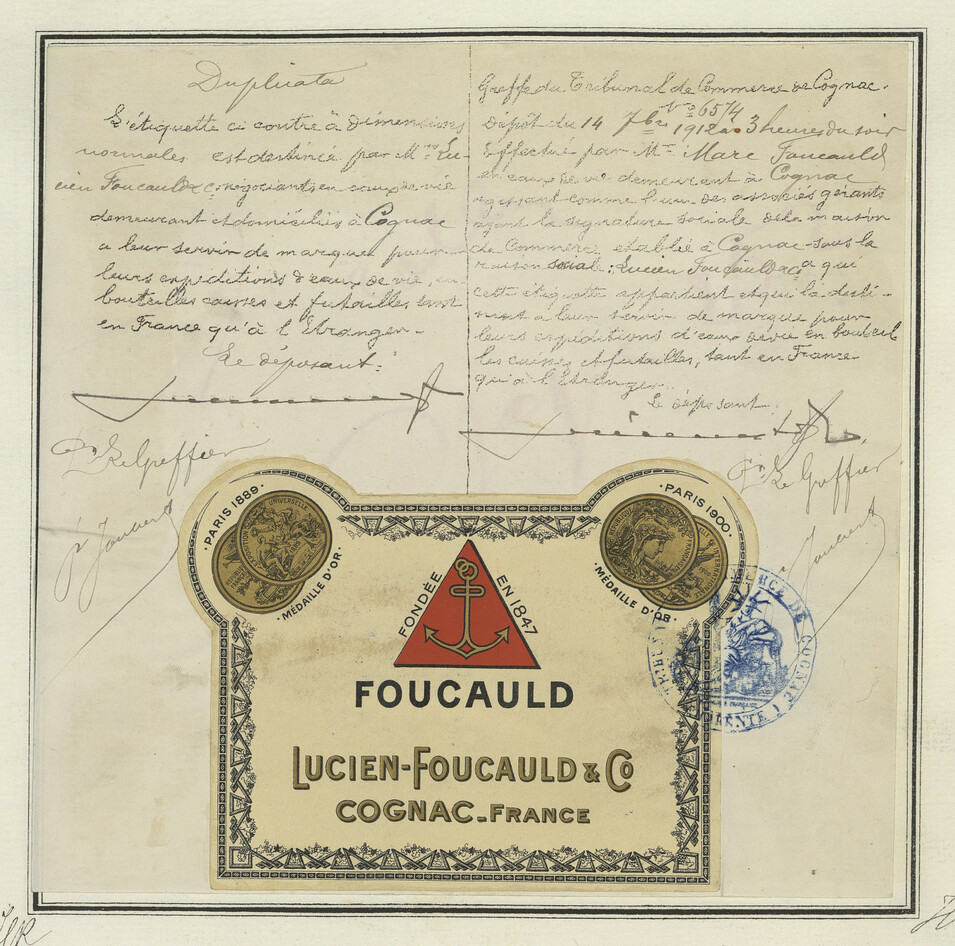 Duplicata
L'étiquette ci contre à dimensions
normales est destinée par Mrs Lu-
cien Foucauld & Co négociants en eaux de vie
demeurant et domiciliés à Cognac
a leur servir de marque pour
leurs expéditions d'eaux de vie, en
bouteilles caisses et futailles tant
en France qu'à l'Etranger.
Le déposant:
Pr Le Greffier
Greffe du Tribunal de Commerce de Cognac.
No 6574
Dépôt du 14 7bre 1912 a 3 heures du soir
Effectué par Mr Marc Foucauld
en eaux de vie demeurant à Cognac
agissant comme l'un des associés gérants
ayant la signature sociale de la maison
de Commerce etablie à Cognac sous la
raison sociale: Lucien Foucauld & Co a qui
cette étiquette appartient et qui la desti-
nent a leur servir de marque pour
leurs expéditions d'eaux de vie en bouteil
les caisses et futailles, tant en France
qu'à l'Etranger.
Le déposant
Pr Le Greffier
PARIS 1889
MÉDAILLE D'OR
PARIS 1900
MÉDAILLE D'OR
FONDÉE EN 1847
FOUCAULD
LUCIEN-FOUCAULD & Co
COGNAC-FRANCE
COGNAC